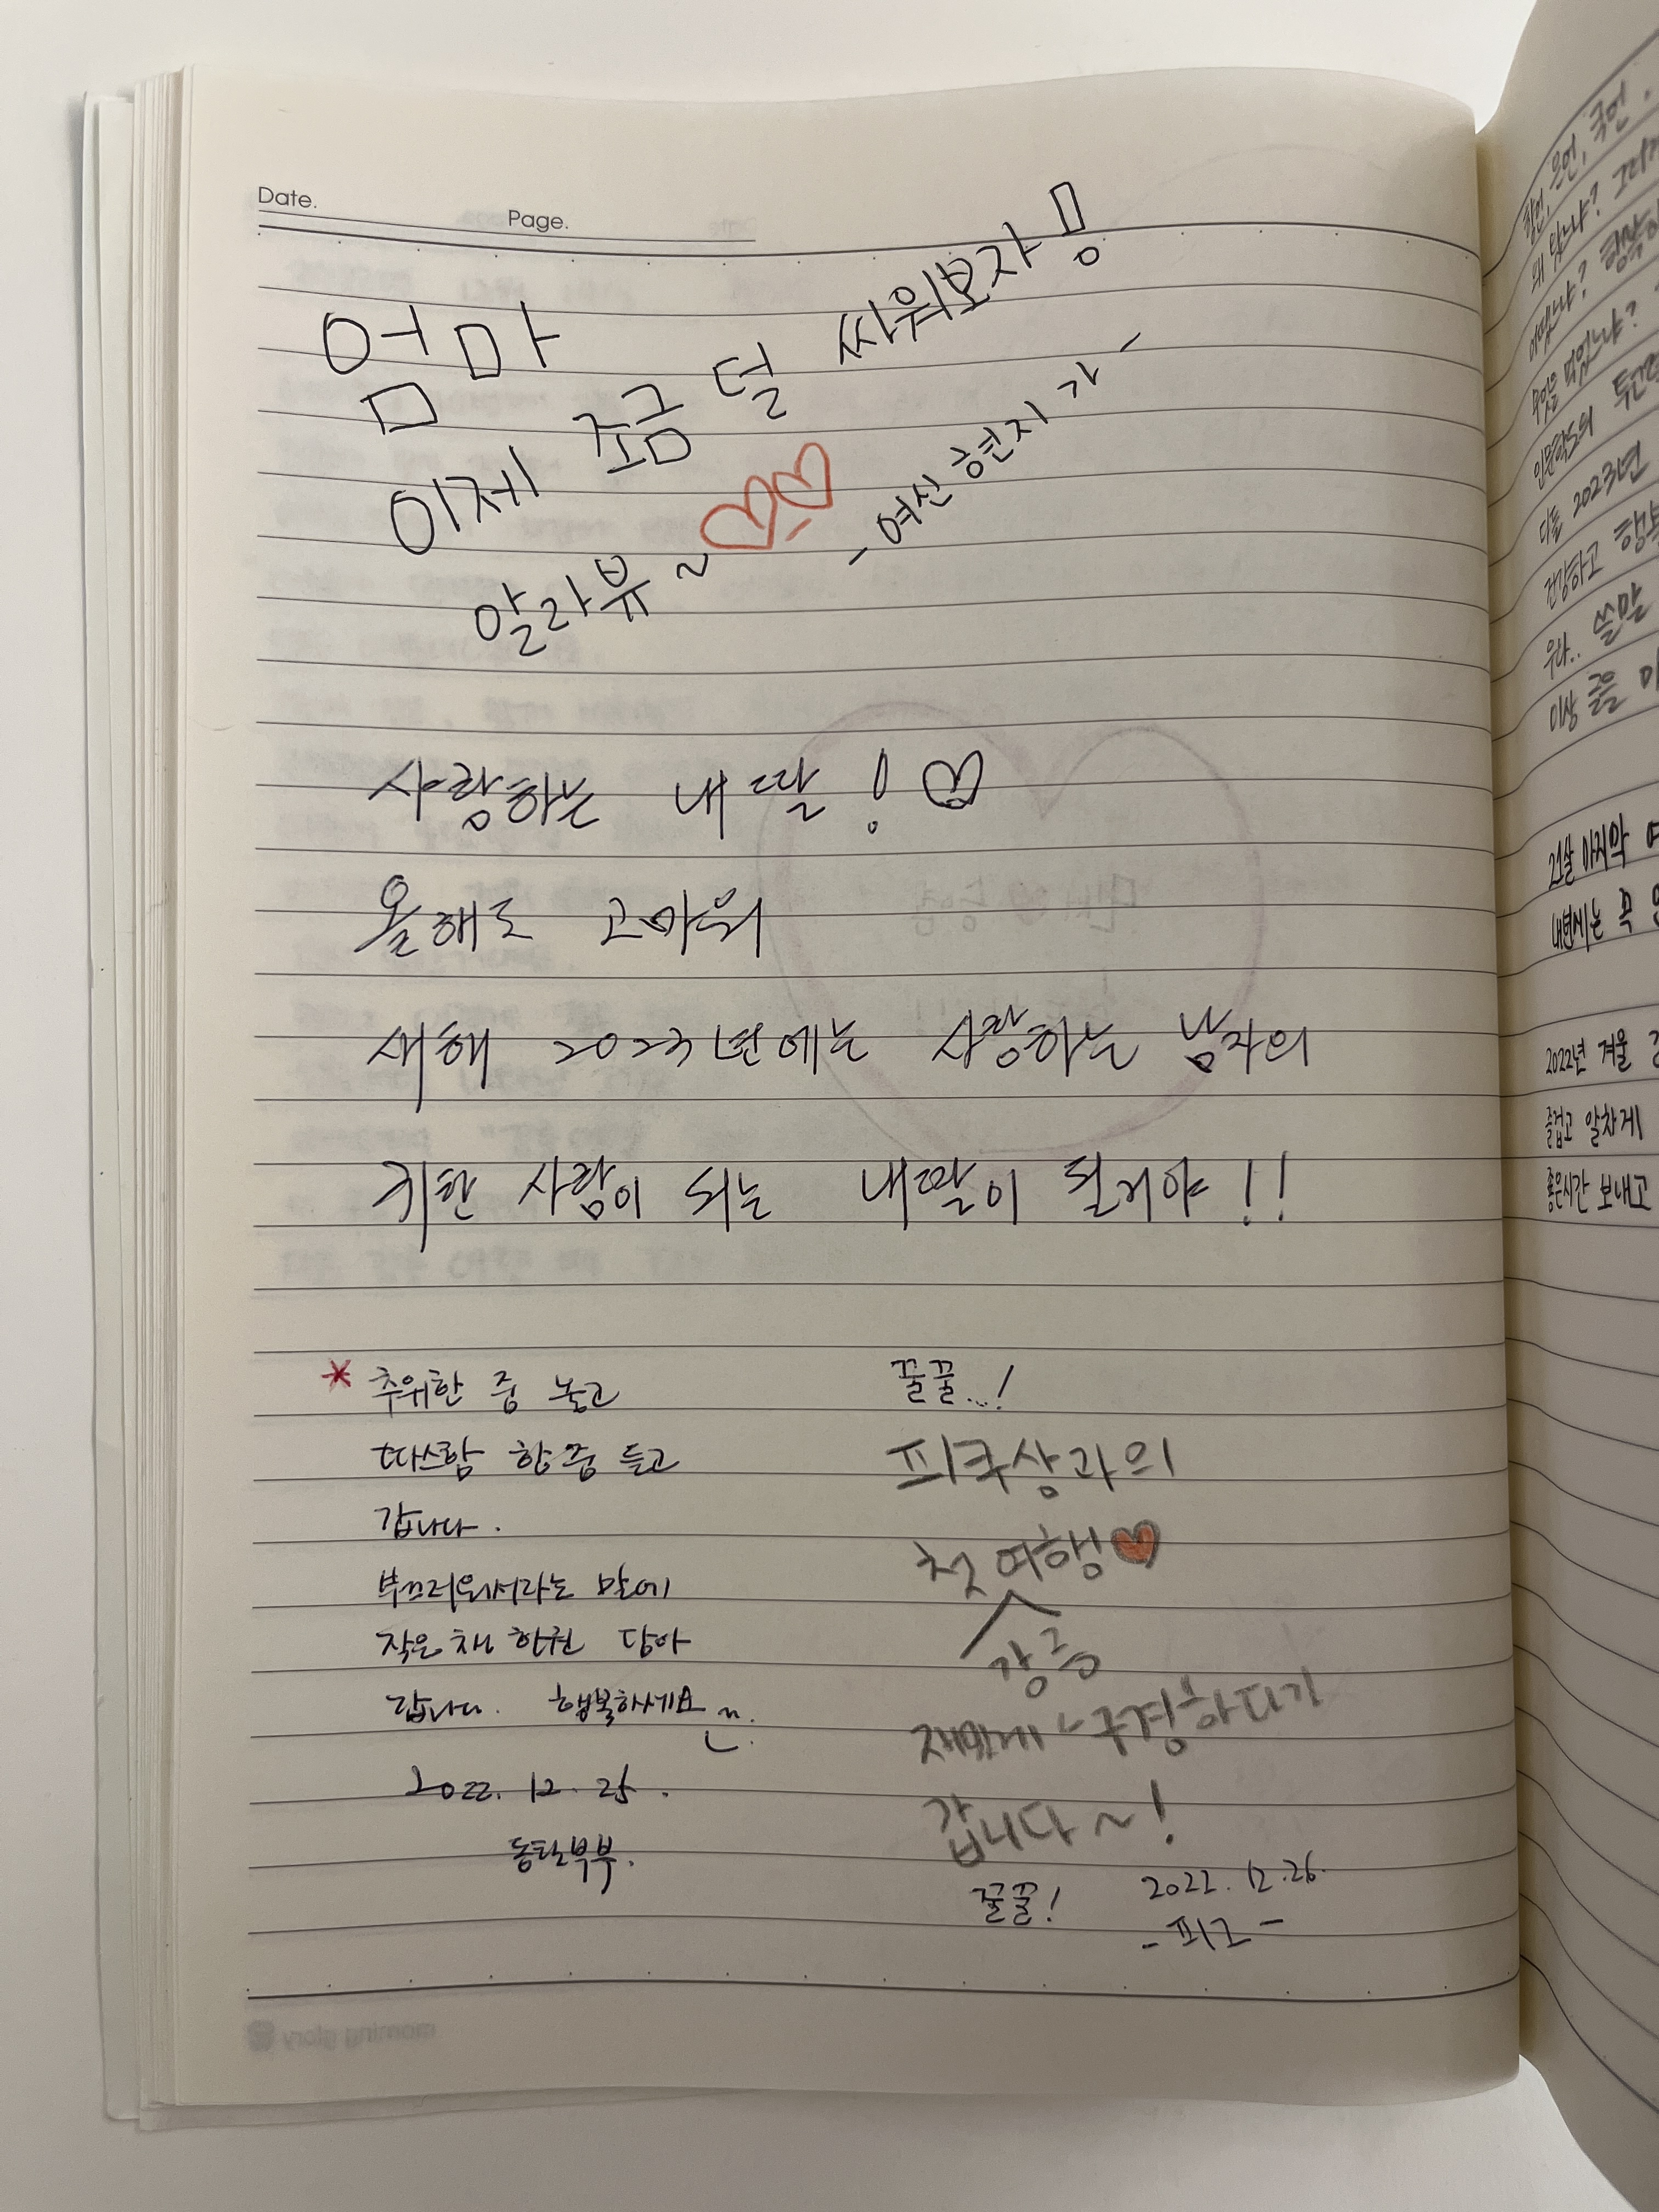 Date.
Page.
엄마
이제 쪼금 덜 싸워보자!
알라뷰~♡♡
-여신 현지가-
사랑하는 내 딸! ♡
올해도 고마워
새해 2023년에는 사랑하는 남자의
귀한 사람이 되는 내딸이 될거야!!
* 추위한 줌 놓고
따스함 한줌 들고
갑니다.
부끄러워서라는 말에
작은 책 한권 담아
갑니다. 행복하세요
2022. 12. 25.
동탄부부.
꿀꿀..!
피쿠상과의
첫 여행♥
강릉
재밌게 구경하다가
갑니다~!
꿀꿀!
2022.12.26.
-피그-
morning glory
활언, 은언, 국언.
왜 왔느냐? 그리
어땠느냐? 행복
무엇을 먹었느냐?
다들 2023년
건강하고 행복
우와.. 쓸말
이상 글을 마
21살 마지막 여
내년에는 꼭
2022년 겨울
즐겁고 알차게
좋은시간 보내고